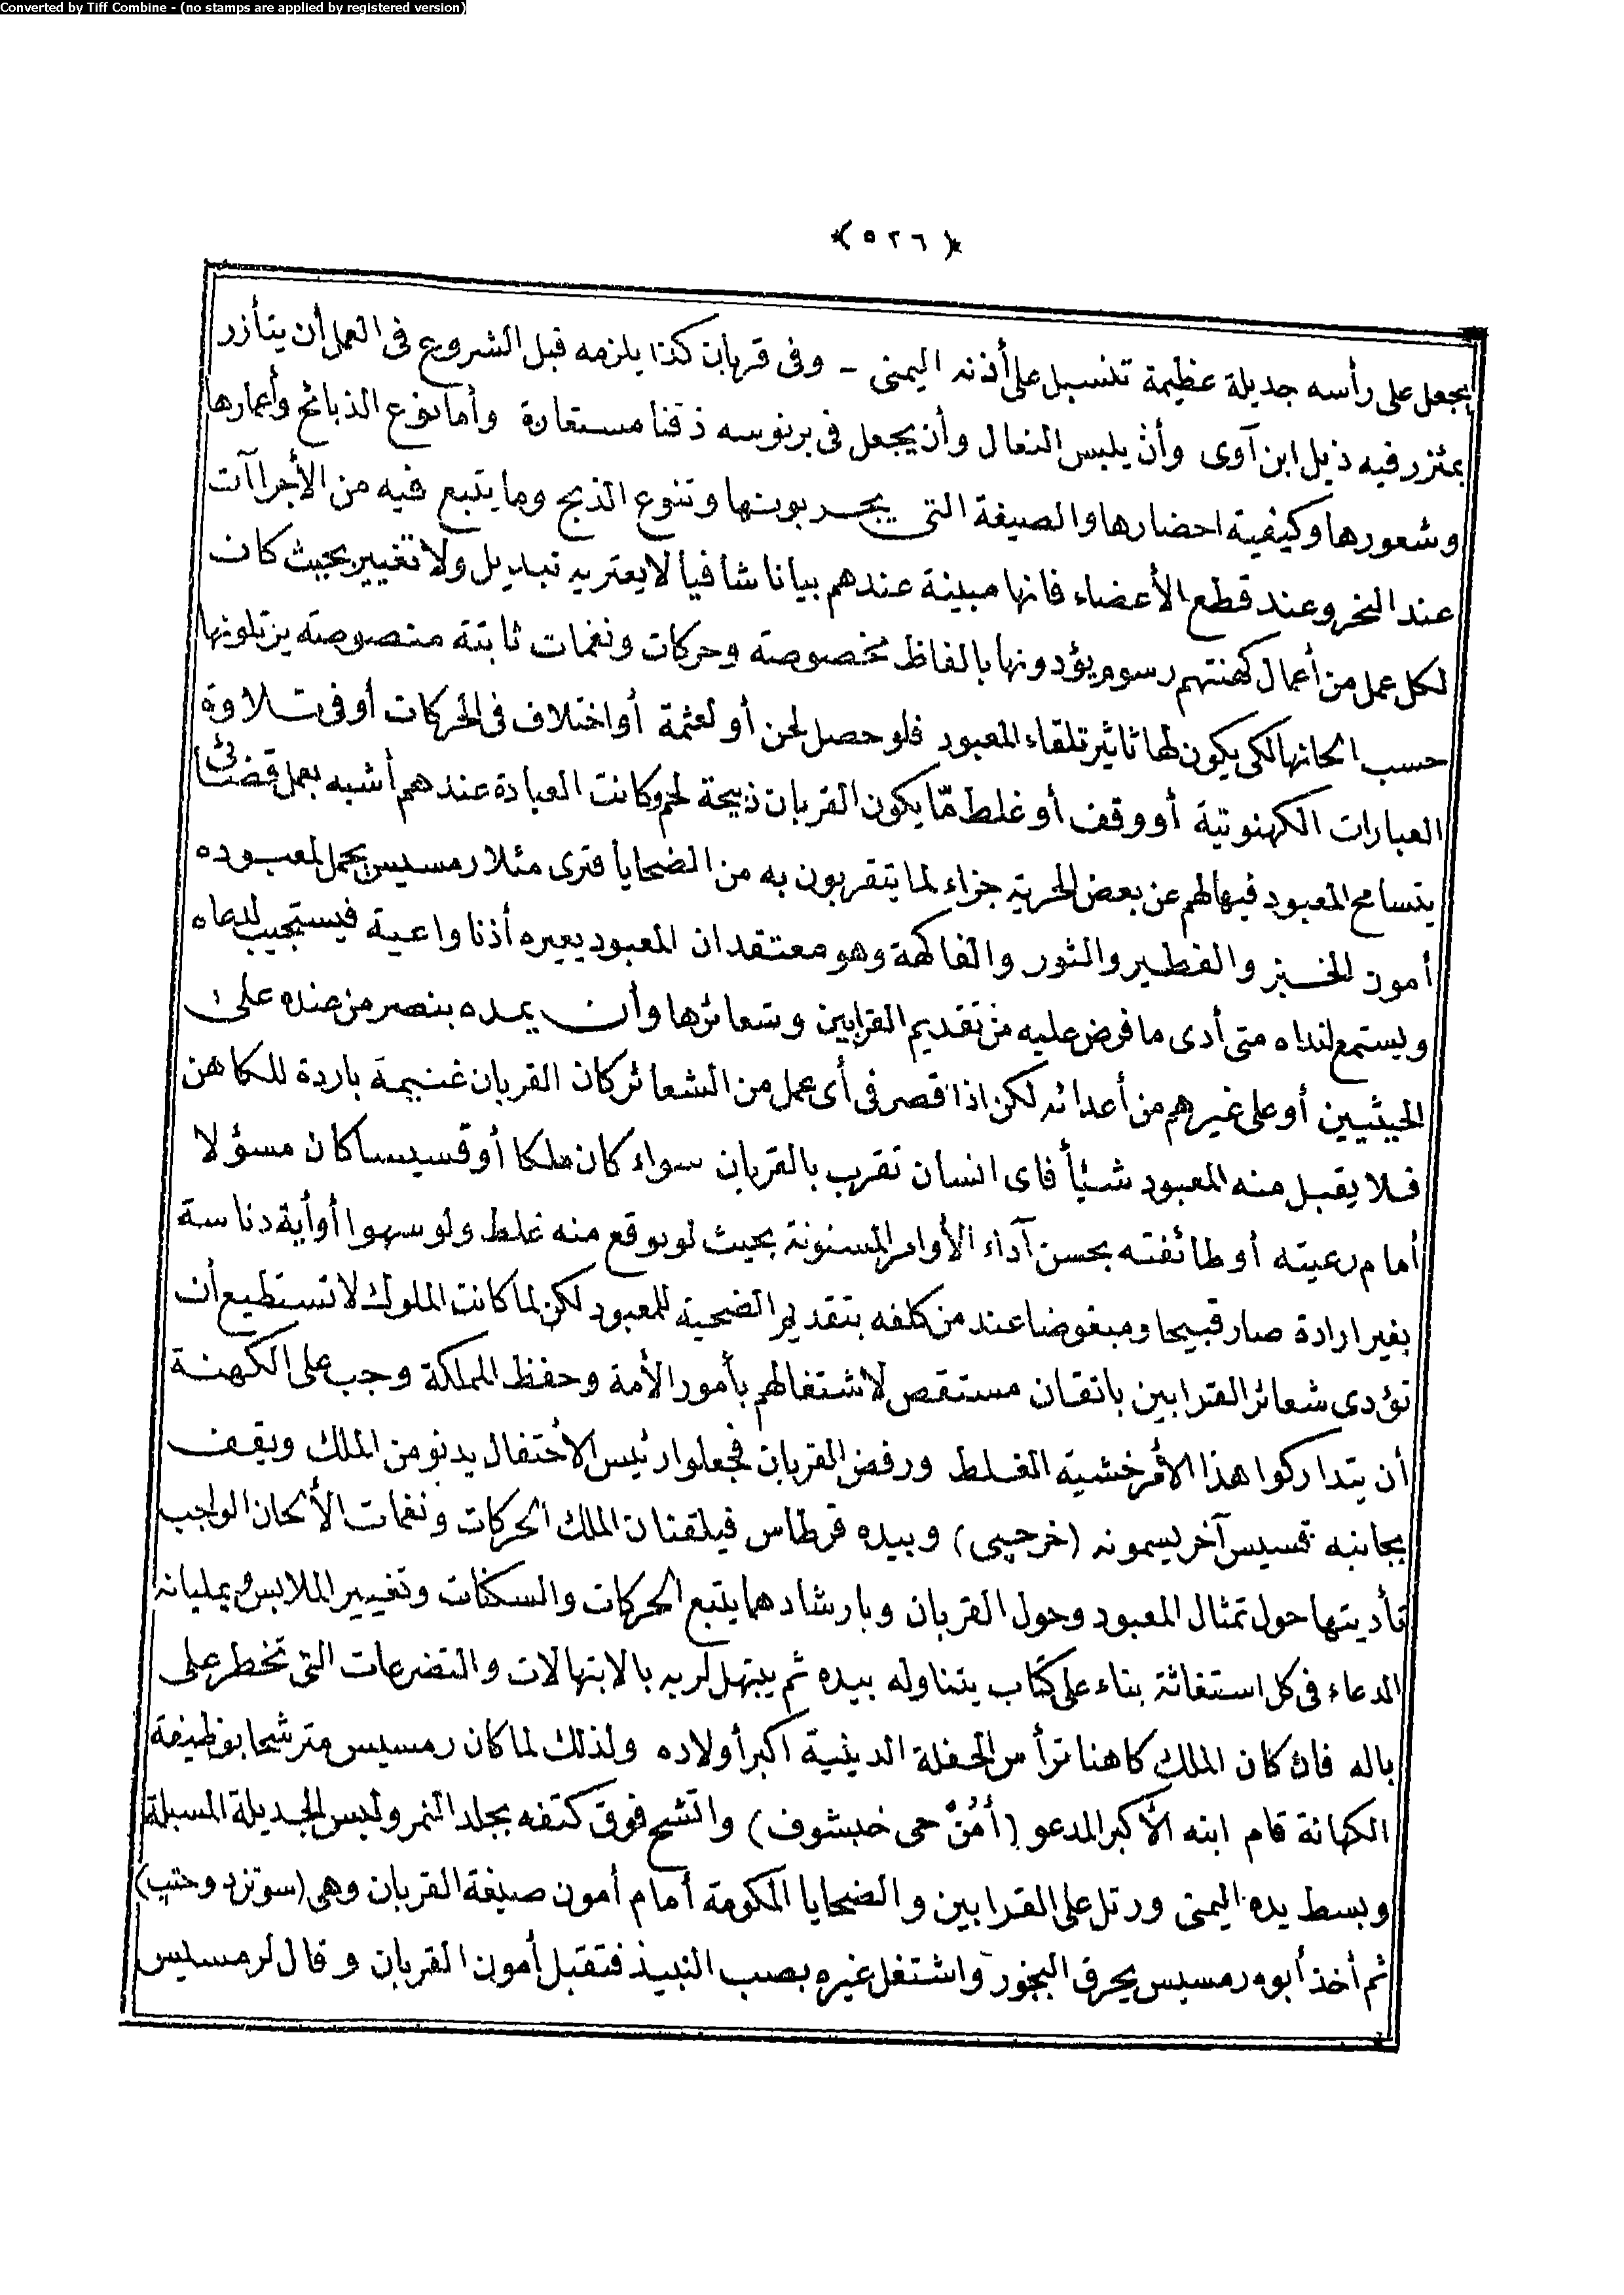 Converted by Tiff Combine - (no stamps are applied by registered version)
﴿ ٥٢٦ ﴾
يجعل على رأسه جديلة عظيمة تنسبل على أذنه اليمنى - وفى قربان كذا يلزمه قبل الشروع فى العمل أن يتأزر
بمئزر فيه ذيل ابن آوى وأن يلبس النعال وأن يجعل فى برنوسه ذقنا مستعارة وأما نوع الذبائح وأعمارها
وشعورها وكيفية احضارها والصيغة التى يجربونها وتنوع الذبح وما يتبع فيه من الأجراآت
عند النحر وعند قطع الأعضاء فانها مبينة عندهم بيانا شافيا لا يعتريه تبديل ولا تغيير بحيث كان
لكل عمل من أعمال كهنتهم رسوم يؤدونها بالفاظ مخصوصة وحركات ونغمات ثابتة منصوصة يرتلونها
حسب الحانها لكى يكون لها تاثير تلقاء المعبود فلو حصل لحن أو لعثمة أو اختلاف فى الحركات أو فى تلاوة
العبارات الكهنوتية أو وقف أو غلط مّا يكون القربان ذبيحة لحم وكانت العبادة عندهم أشبه بعمل قضائى
يتسامح المعبود فيها لهم عن بعض الحرية جزاء لما يتقربون به من الضحايا فترى مثلا رمسيس يحمل لمعبوده
أمون الخبز والفطير والثور والفاكهة وهو معتقد ان المعبود يعيره أذنا واعية فيستجيب لدعاه
ويستمع لنداه متى أدى ما فرض عليه من تقديم القرابين وشعائرها وأن يمده بنصر من عنده على
الحيثيين أو على غيرهم من أعدائه لكن اذا قصر فى أى عمل من الشعائر كان القربان غنيمة باردة للكاهن
فلا يقبل منه المعبود شيأ فاى انسان تقرب بالقربان سواء كان ملكا أو قسيسا كان مسؤلا
أمام رعيته أو طائفته بحسن آداء الأوامر المسنونة بحيث لو وقع منه غلط ولو سهوا أو أية دناسة
بغير ارادة صار قبيحا ومبغوضا عند من كلفه بتقديم الضحية للمعبود لكن لما كانت الملوك لا تستطيع أن
تؤدى شعائر القرابين باتقان مستقص لاشتغالهم بأمور الأمة وحفظ المملكة وجب على الكهنة
أن يتداركوا هذا الأمر خشية الغلط ورفض القربان فجعلوا رئيس الأحتفال يدنو من الملك ويقف
بجانبه قسيس آخر يسمونه (خرحبى) وبيده قرطاس فيلقنان الملك الحركات ونغمات الألحان الواجب
تأديتها حول تمثال المعبود وحول القربان وبارشادهما يتبع الحركات والسكنات وتغيير الملابس ويمليانه
الدعاء فى كل استغاثة بناء على كتاب يتناوله بيده ثم يبتهل لربه بالابتهالات والتضرعات التى تخطر على
باله فان كان الملك كاهنا ترأس الحفلة الدينية اكبر أولاده ولذلك لما كان رمسيس مترشحا بوظيفة
الكهانة قام ابنه الأكبر المدعو (أمُنْ حى خبشوف) واتشح فوق كتفه بجلد النمر ولبس الجديلة المسبلة
وبسط يده اليمنى ورتل على القرابين والضحايا المكومة أمام أمون صيغة القربان وهى (سوتزد وحتب)
ثم أخذ أبوه رمسيس يحرق البخور واشتغل غيره بصب النبيذ فتقبل أمون القربان وقال لرمسيس